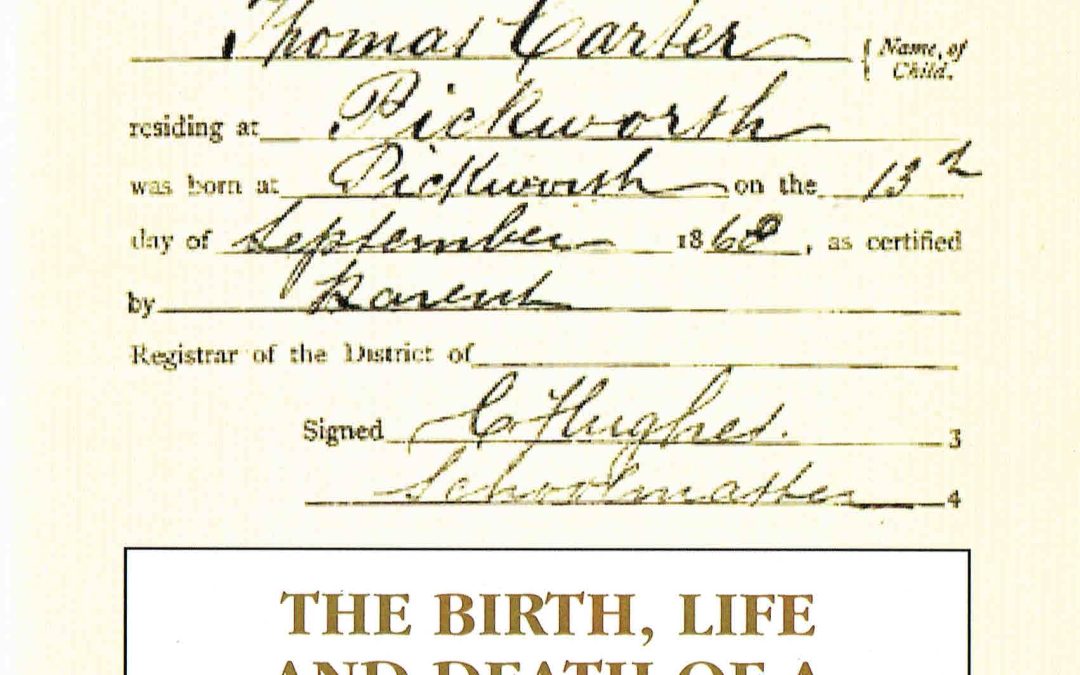 Thomas Carter { Name, of Child.
residing at Pickworth
was born at Pickworth on the 13th
day of September 1868, as certified
by Parent
Registrar of the District of
Signed C Hughes. 3
Schoolmaster 4
THE BIRTH, LIFE
AND DEATH OF A